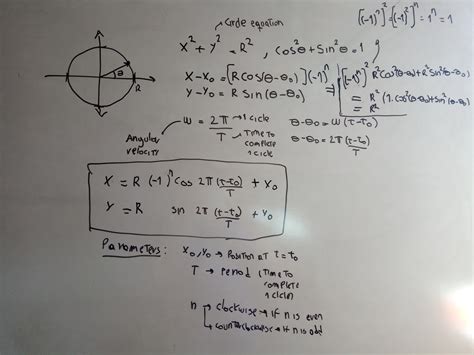 Circle equation
[(-1)^n]^2 = [(-1)^2]^n = 1^n = 1
X^2 + Y^2 = R^2, cos^2θ + sin^2θ = 1
X - X0 = [R cos(θ-θ0)](-1)^n
Y - Y0 = R sin(θ-θ0)
⇒ [(-1)^n]^2 R^2cos^2(θ-θ0) + R^2sin^2(θ-θ0)
= R^2 (1.cos^2(θ-θ0) + sin^2(θ-θ0))
= R^2
θ
R
Angular velocity
ω = 2π/T
→ 1 cicle
→ Time to complete 1 cicle
θ-θ0 = ω(t-t0)
θ-θ0 = 2π (t-t0)/T
X = R (-1)^n cos 2π (t-t0)/T + X0
Y = R sin 2π (t-t0)/T + Y0
Parameters: X0, Y0 → Position at t = t0
T → period (Time to complete 1 cicle)
n → clockwise → if n is even
→ counterclockwise → if n is odd